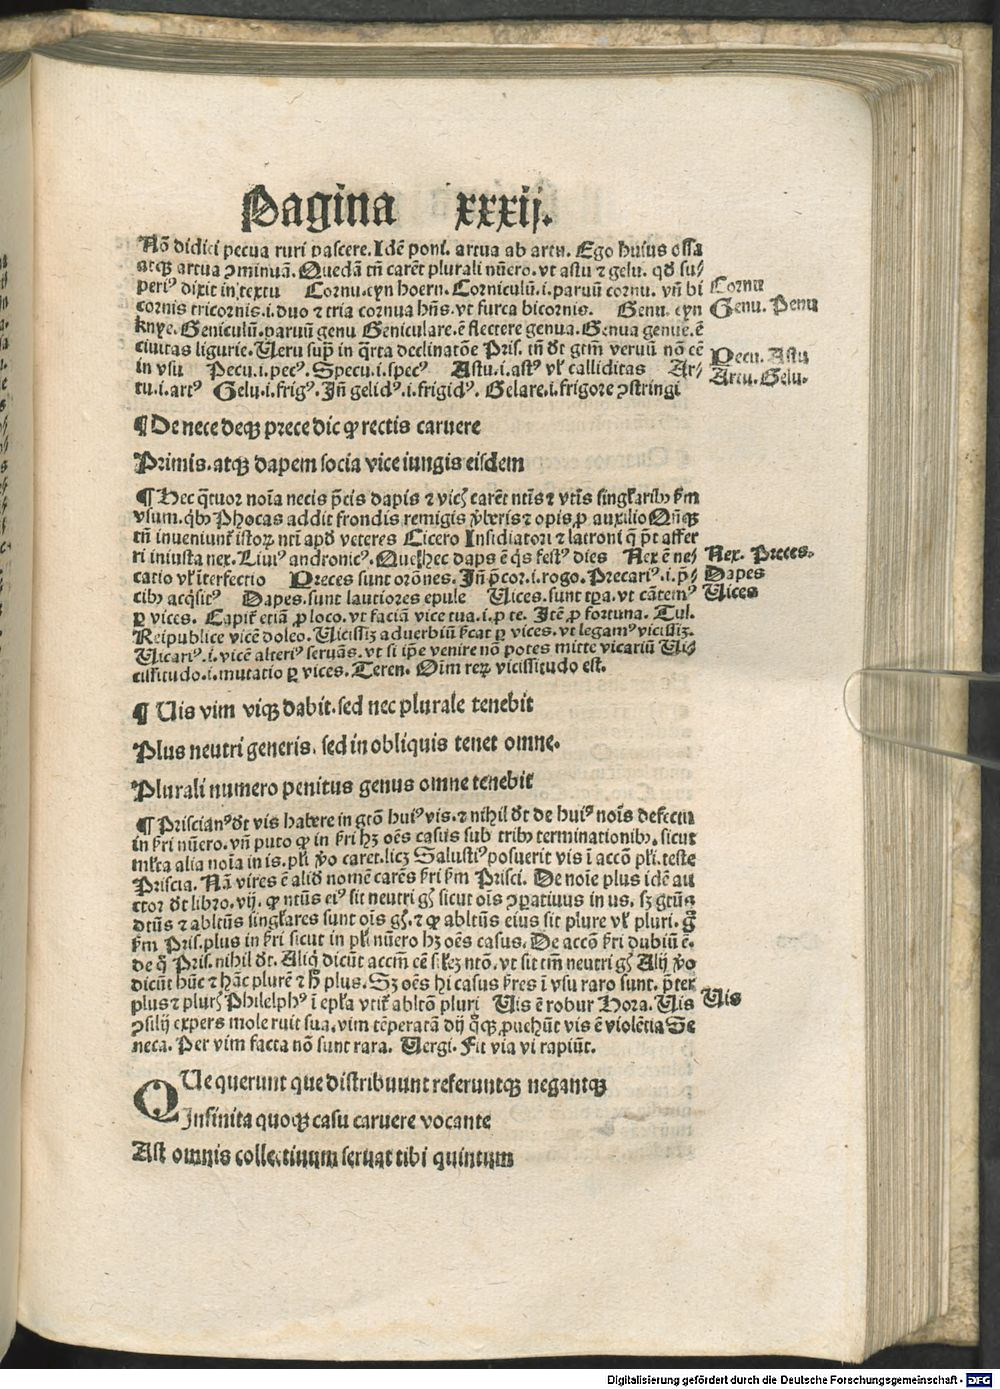 Pagina xxxij.
Nō didici pecua ruri pascere. Idē poni. artua ab artu. Ego huius ossa
atqȝ artua ↄminuā. Quedā tñ carēt plurali nūero. vt astu ⁊ gelu. qđ su⸗
perꝰ dixit in textu Cornu. eyn hoern. Corniculū. i. paruū cornu. vñ bi
cornis tricornis. i. duo ⁊ tria cornua hñs. vt furca bicornis. Genu. eyn
knye. Geniculū. paruū genu Geniculare. ē flectere genua. Genua genue. ē
ciuitas ligurie. Ueru supͣ in qͣrta declinatōe Pris. tñ dt gtm̄ veruū nō cē
in vsu Pecu. i. pecꝰ. Specu. i. specꝰ Astu. i. astꝰ vl calliditas Ar⸗
tu. i. artꝰ Gelu. i. frigꝰ. Jñ gelidꝰ. i. frigidꝰ. Gelare. i. frigore ↄstringi
Cornu
Genu. Penu
Pecu. Astu
Artu. Gelu.
¶ De nece deqȝ prece dic ꝙ rectis caruere
Primis. atqȝ dapem socia vice iungis eisdem
¶ Hec qͣtuor noīa necis p̄cis dapis ⁊ vicꝭ carēt ntīs ⁊ vtīs singlaribꝰ ẜm
vsum. qͥbꝰ Phocas addit frondis remigis v̓beris ⁊ opis ꝓ auxilio Qn̄qȝ
tñ inueniunt̄ istoꝝ ntī apđ veteres Cicero Insidiatori ⁊ latroni q̄ pōt affer
ri iniusta nex. Liuiꝰ andronicꝰ. Que hec daps ē qͥs festꝰ dies Nex ē ne⸗
catio vl īterfectio Preces sunt orōnes. Jñ p̄cor. i. rogo. Precariꝰ. i. p̄⸗
cibꝰ acqͥsitꝰ Dapes. sunt lautiores epule Uices. sunt tꝑa. vt cātemꝰ
ꝑ vices. Capit̄ etiā ꝓ loco. vt faciā vice tua. i. ꝓ te. Jtē ꝓ fortuna. Tul.
Reipublice vicē doleo. Uicissiȝ aduerbiū ẜcat ꝑ vices. vt legamꝰ vicissiȝ.
Uicariꝰ. i. vicē alteriꝰ seruās. vt si ip̄e venire nō potes mitte vicariū Ui⸗
cissitudo. i. mutatio ꝑ vices. Teren. Oīm reꝝ vicissitudo est.
Nex. Preces.
Dapes
Uices
¶ Uis vim viqȝ dabit. sed nec plurale tenebit
Plus neutri generis. sed in obliquis tenet omne.
Plurali numero penitus genus omne tenebit
¶ Priscianꝰ dt vis habere in gtō huiꝰ vis. ⁊ nihil dt de huiꝰ noīs defectu
in ẜri nūero. vñ puto ꝙ in ẜri hȝ oēs casus sub tribꝰ terminationibꝰ. sicut
ml̄ta alia noīa in is. pl̄i v̓o caret. licȝ Salustiꝰ posuerit vis ī accō pl̄i. teste
Priscia. Nā vires ē aliđ nomē carēs ẜri ẜm Prisci. De noīe plus idē au
ctor dt libro. vij. ꝙ ntūs eiꝰ sit neutri gꝭ sicut oīs ↄꝑatiuus in us. sȝ gtūs
dtūs ⁊ abltūs singlares sunt oīs gꝭ. ⁊ ꝙ abltūs eius sit plure vl pluri. g̊
ẜm Pris. plus in ẜri sicut in pl̄i nūero hȝ oēs casus. De accō ẜri dubiū ē.
de q̊ Pris. nihil dt. Aliqͥ dicūt accm̄ cē silez ntō. vt sit tm̄ neutri gꝭ Alij v̓o
dicūt hūc ⁊ hāc plurē ⁊ h̄ plus. Sȝ oēs hi casus ẜres ī vsu raro sunt. p̄ter
plus ⁊ plurꝭ Philelphꝰ ī epl̄a vtit̄ abltō pluri Uis ē robur Hora. Uis
ↄsilij expers mole ruit sua. vim tēperatā dij qͦqȝ ꝓuehūt vis ē violētia Se
neca. Per vim facta nō sunt rara. Uergi. Fit via vi rapiūt.
Uis
QUe querunt que distribuunt referuntqȝ negantqȝ
Infinita quoqȝ casu caruere vocante
Ast omnis collectiuum seruat tibi quintum
Digitalisierung gefördert durch die Deutsche Forschungsgemeinschaft - DFG